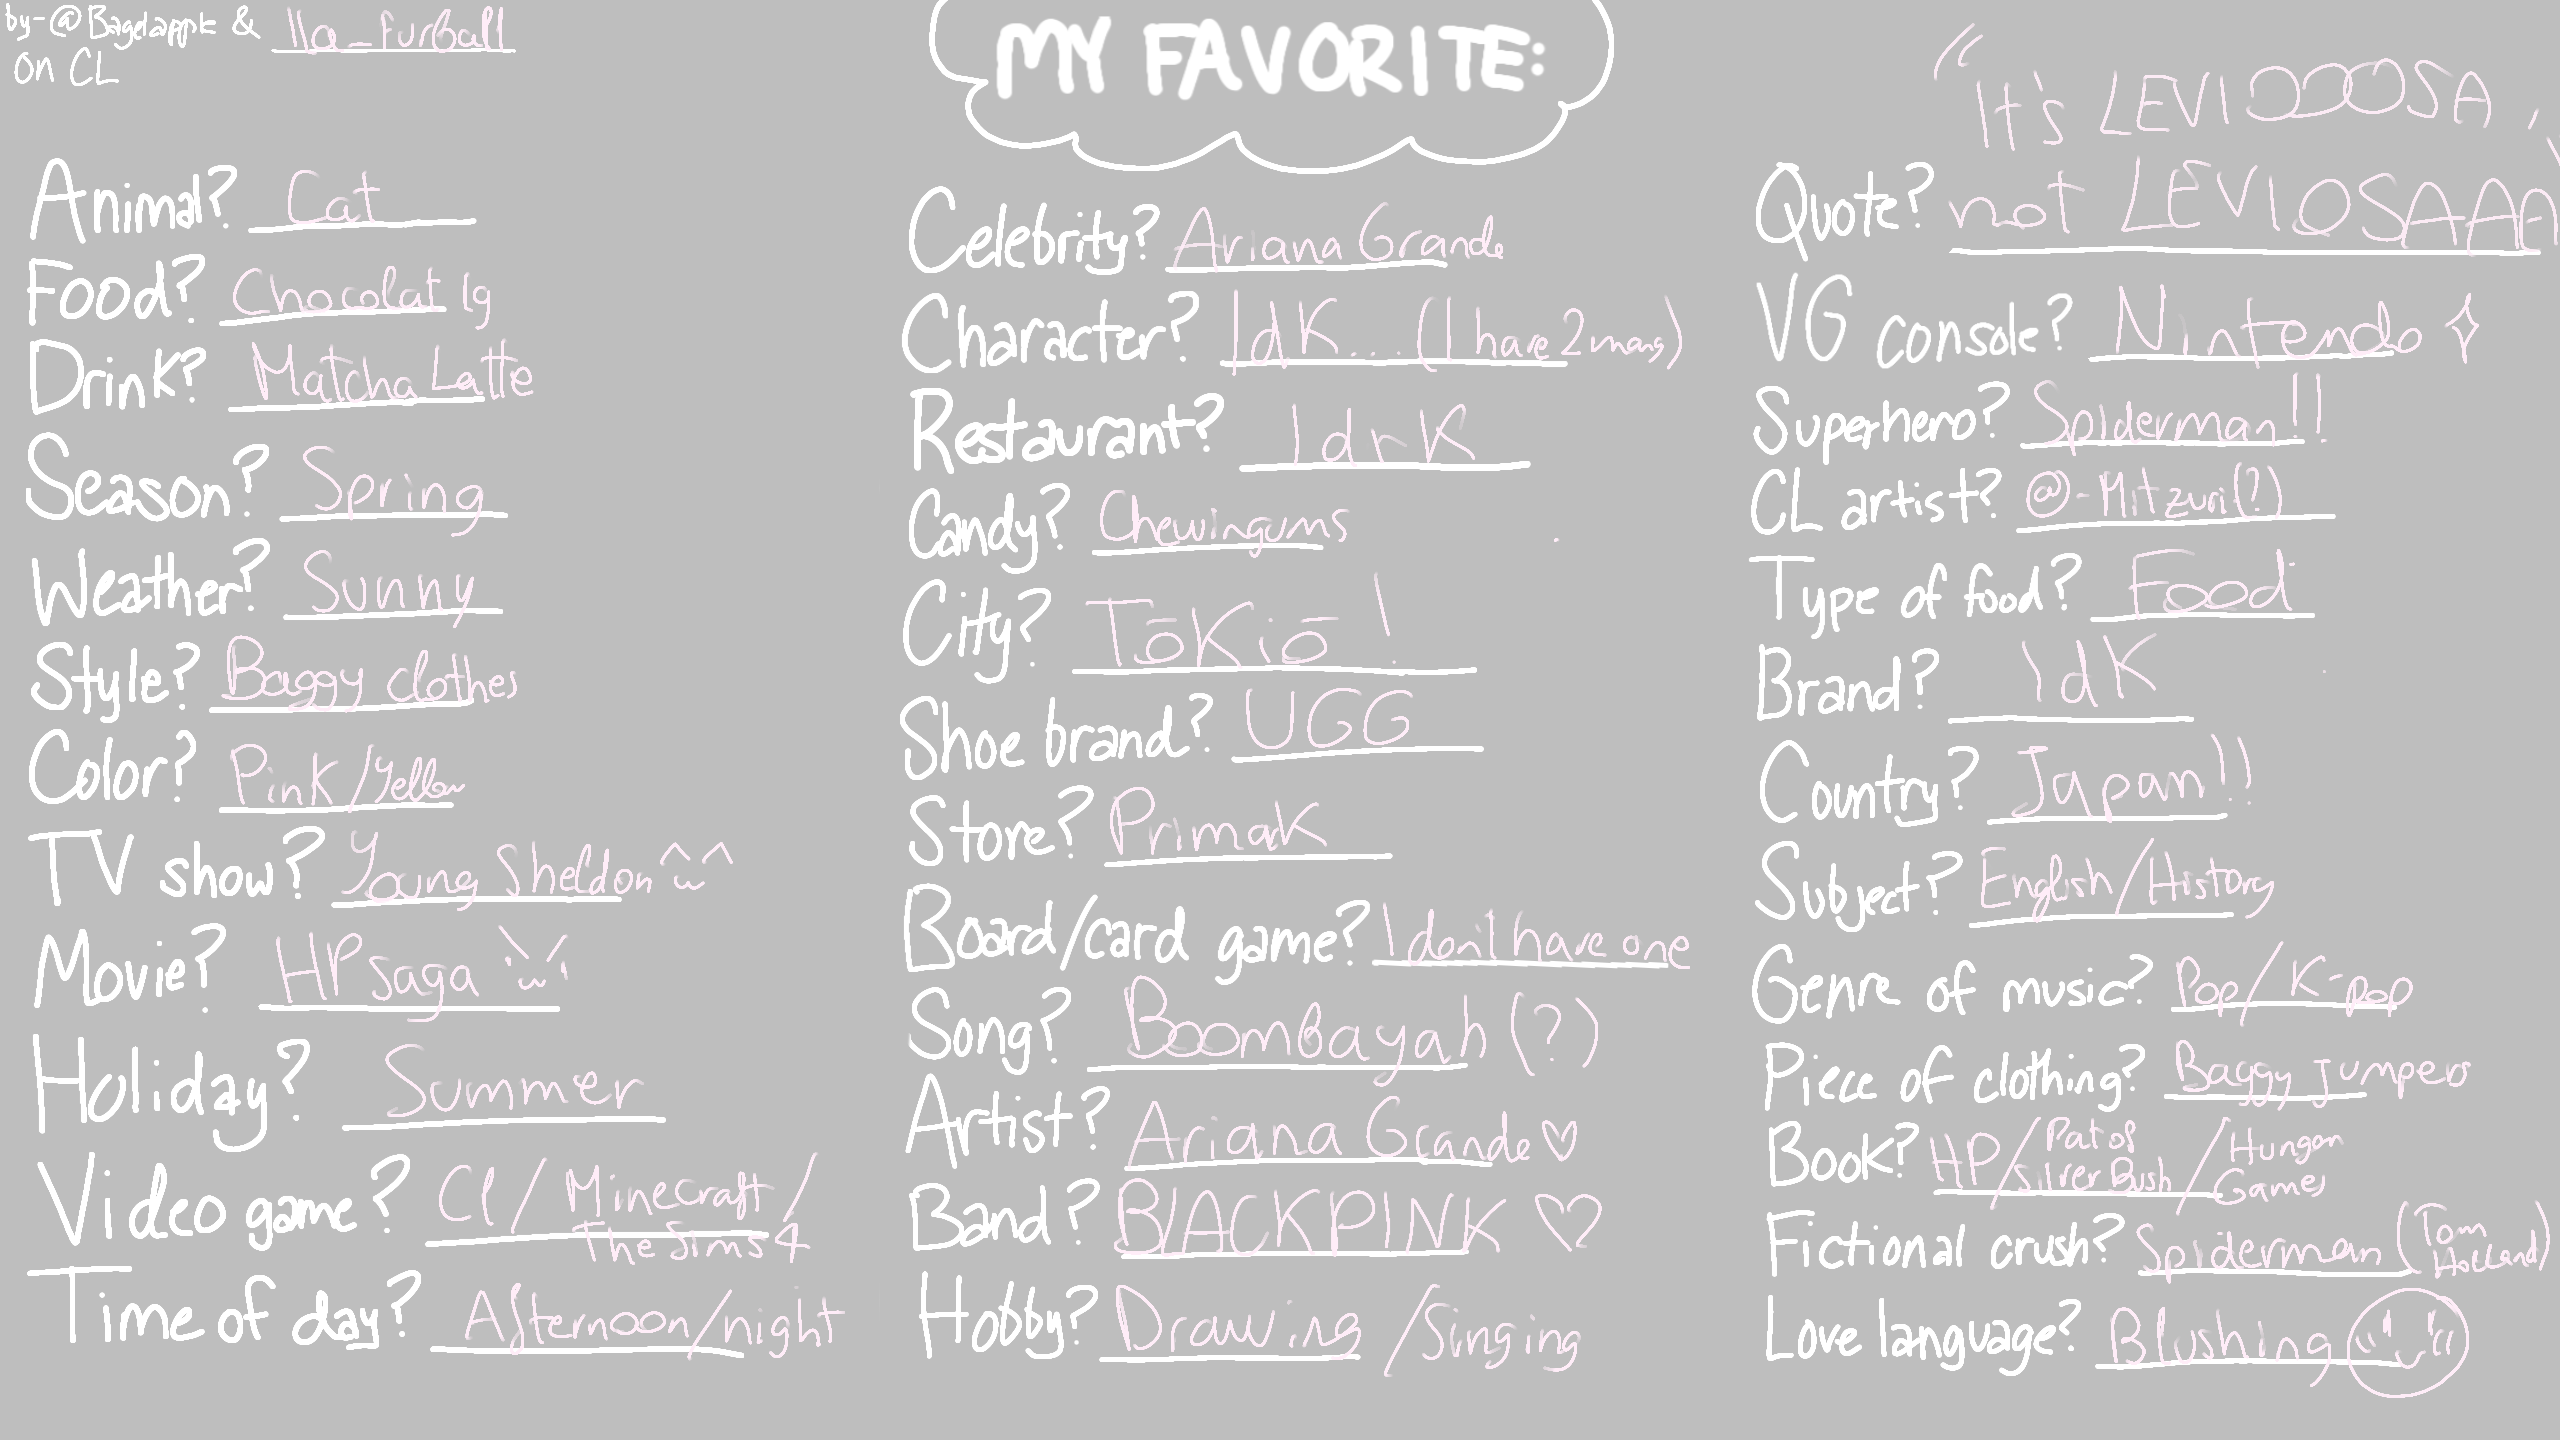 by-@Bagelapple & lla_furball
on CL
MY FAVORITE:
Animal? Cat
Food? Chocolat ig
Drink? Matcha Latte
Season? Spring
Weather? Sunny
Style? Baggy clothes
Color? Pink/Yellow
TV show? Young Sheldon ^w^
Movie? HP saga
Holiday? Summer
Video game? Cl / Minecraft /
The Sims 4
Time of day? Afternoon/night
Celebrity? Ariana Grande
Character? Idk... (I have 2 many)
Restaurant? Idrk
Candy? Chewingums
City? Tōkiō !
Shoe brand? UGG
Store? Primak
Board/card game? I don't have one
Song? Boombayah (?)
Artist? Ariana Grande ♡
Band? BLACKPINK ♡
Hobby? Drawing /Singing
"It's LEVIOOOSA,
Quote? not LEVIOSAAA"
VG console? Nintendo ✧
Superhero? Spiderman!!
CL artist? @-Mitzuri(?)
Type of food? Food
Brand? Idk
Country? Japan!!
Subject? English/History
Genre of music? Pop/K-pop
Piece of clothing? Baggy jumpers
Book? HP/Pat of Silver Bush/Hunger Games
Fictional crush? Spiderman (Tom Holland)
Love language? Blushing